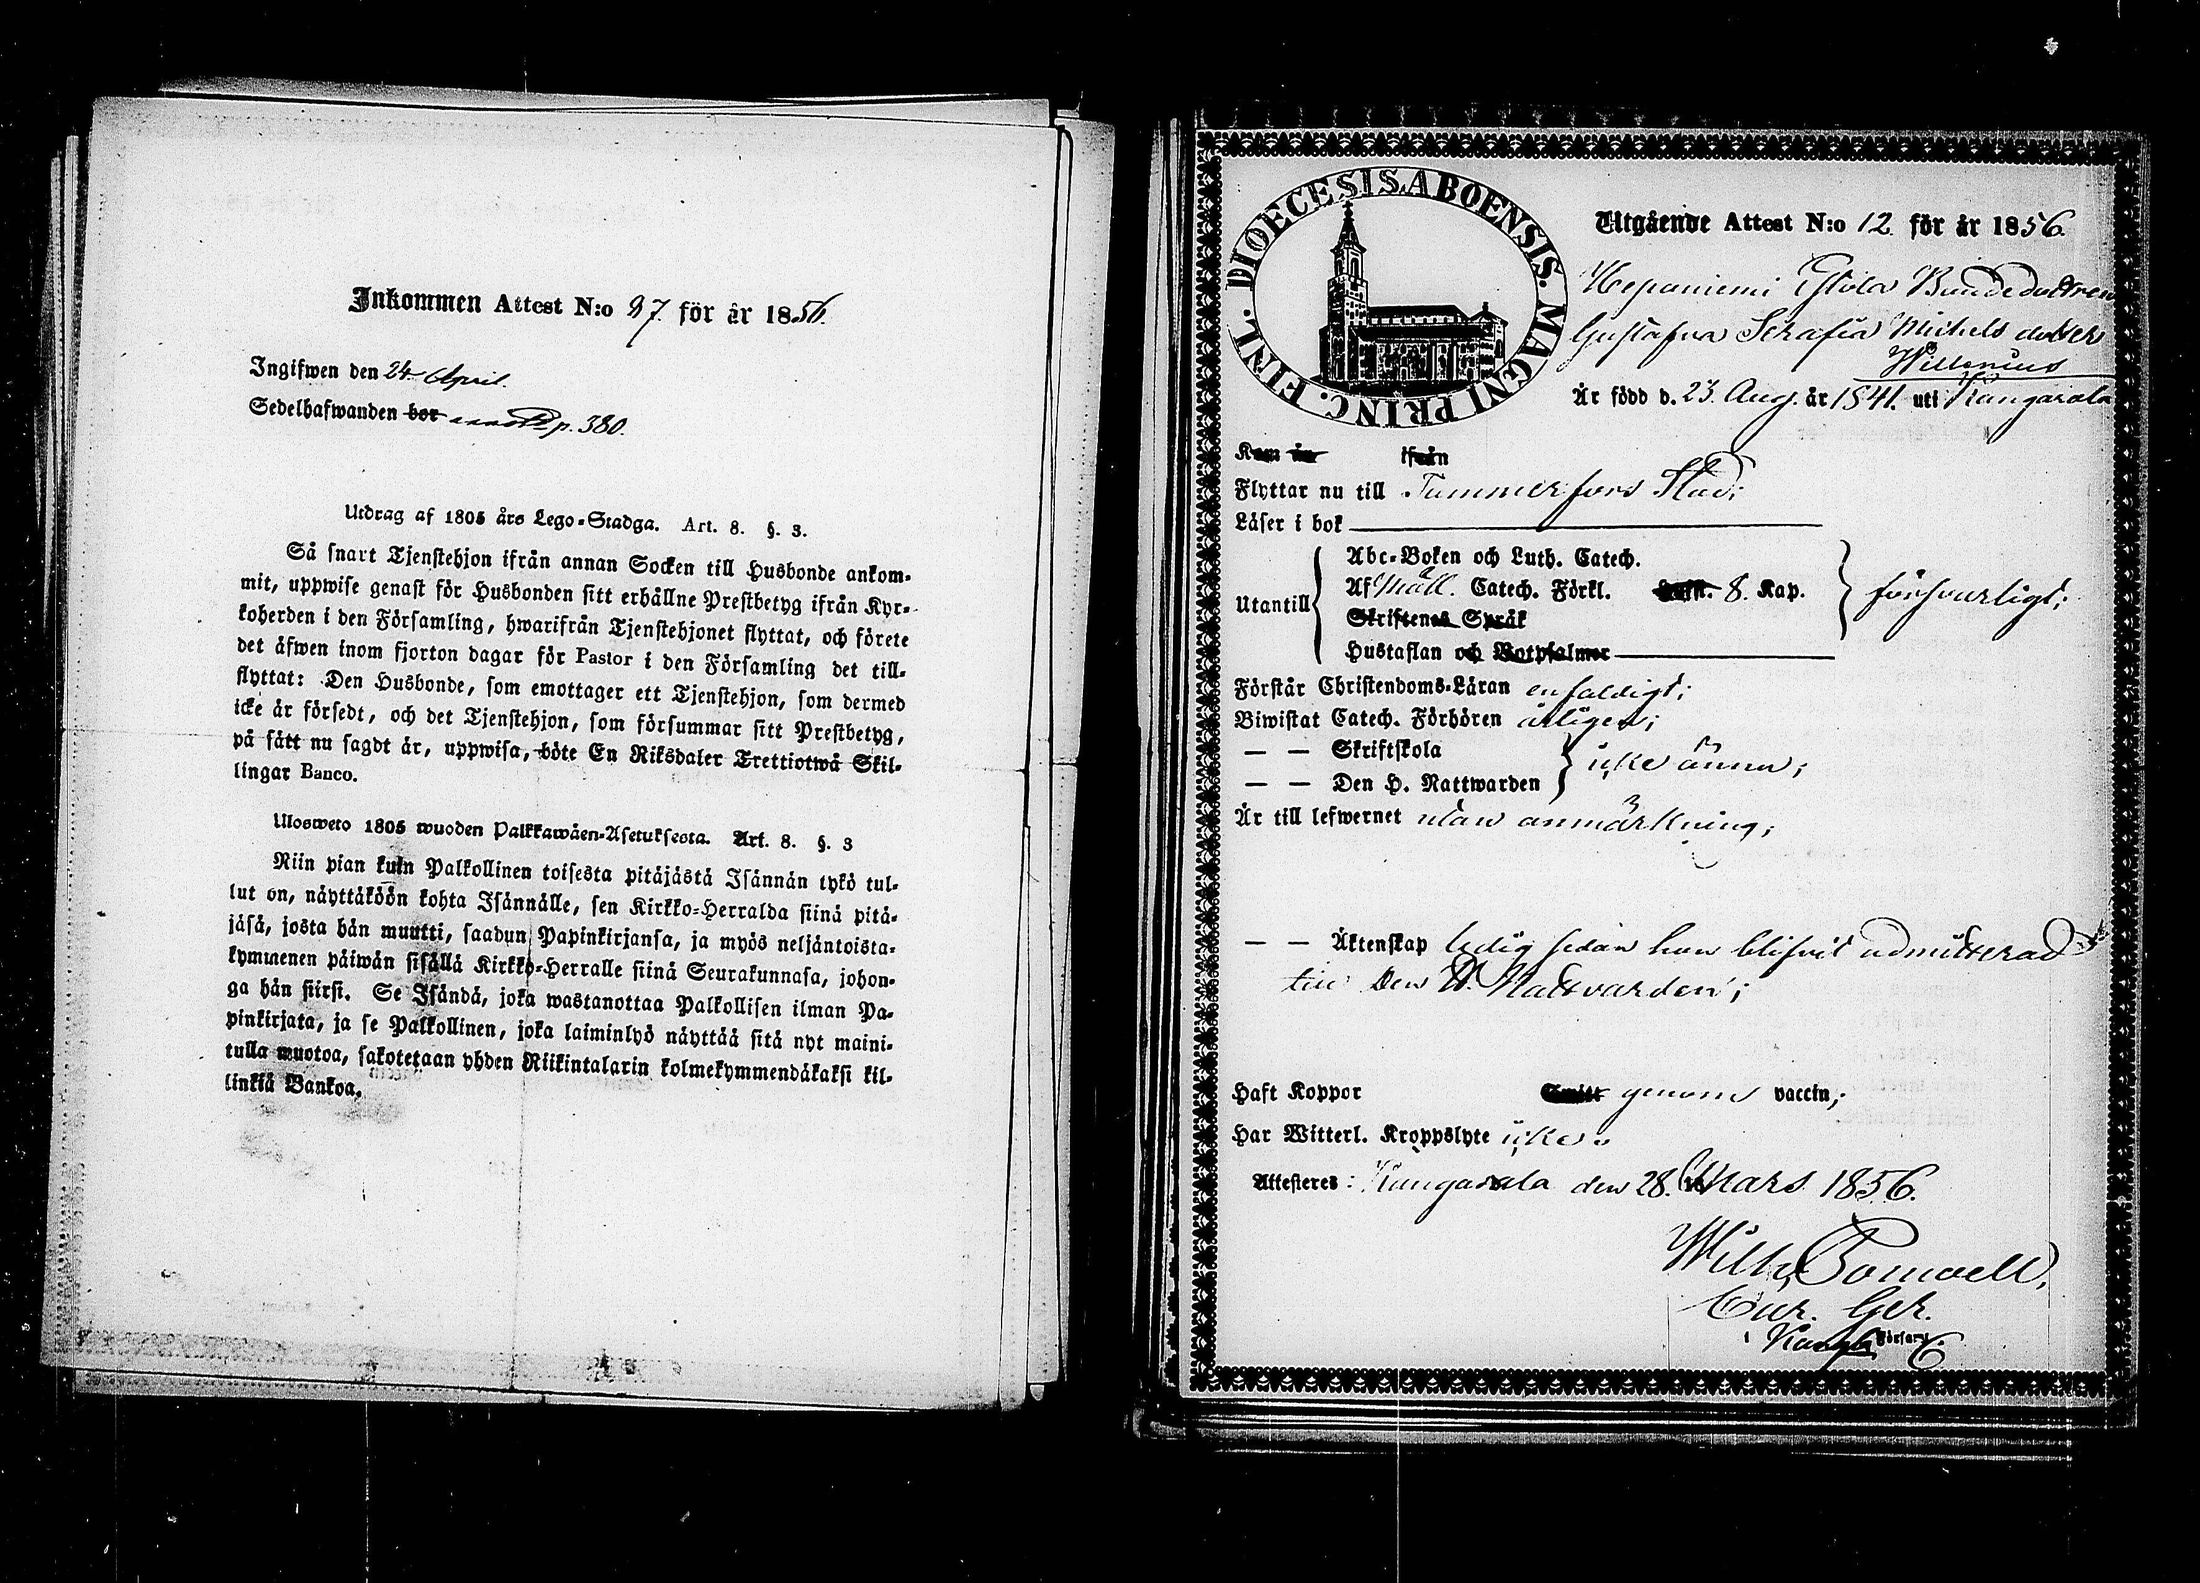 Inkommen Attest N:o 97. för år 1856.
Ingifwen den 24 April.
Sedelhafwanden bor p. 380.
Utdrag af 1805 års Lego-Stadga. Art. 8. §. 3.
Så snart Tjenstehjon ifrån annan Socken till Husbonde ankom-
mit, uppwise genast för Husbonden sitt erhållne Prestbetyg ifrån Kyr-
koherden i den Församling, hwarifrån Tjenstehjonet flyttat, och förete
det äfwen inom fjorton dagar för Pastor i den Församling det till-
flyttat: Den Husbonde, som emottager ett Tjenstehjon, som dermed
icke är försedt, och det Tjenstehjon, som försummar sitt Prestbetyg,
på sätt nu sagdt är, uppwisa, böte En Riksdaler Trettiotwå Skil-
lingar Banco.
Ulosweto 1805 wuoden Palkkawäen-Asetuksesta. Art. 8. §. 3
Niin pian kuin Palkollinen toisesta pitäjästä Isännän tykö tul-
lut on, näyttäköön kohta Isännälle, sen Kirkko-Herralda siinä pitä-
jäsä, josta hän muutti, saadun Papinkirjansa, ja myös neljäntoista-
kymmenen päiwän sisällä Kirkko-Herralle siinä Seurakunnasa, johon-
ga hän siirsi. Se Isändä, joka wastanottaa Palkollisen ilman Pa-
pinkirjata, ja se Palkollinen, joka laiminlyö näyttää sitä nyt maini-
tulla muotoa, sakotetaan yhden Riikintalarin kolmekymmendäkaksi kil-
linkiä Bankoa.
DIOECESIS ABOENSIS. MAGNI PRINC. FINL.
Utgående Attest N:o 12. för år 1856.
Hepaniemi Bondedottren
Gustafva Serafia Michels dotter
Willenius
Är född d. 23. Aug. år 1841. uti Kangasala
Kom in ifrån
Flyttar nu till Tammerfors Stad;
Läser i bok
Abc-Boken och Luth. Catech.
Utantill Af Mall. Catech. Förkl. 8. Kap. försvarligt;
Skriftenes Språk
Hustaflan och Botpsalmer
Förstår Christendoms-Läran enfaldigt;
Biwistat Catech. Förhören årligen;
— — Skriftskola
icke ännu;
— — Den H. Nattwarden
Är till lefwernet utan anmärkning;
— — Äktenskap ledig sedan hon blifvit admitterad
till Den H. Nattvarden;
Haft Koppor genom vaccin;
Har Witterl. Kroppslyte icke.
Attesteras: Kangasala den 28. Mars 1856.
Cur. Ger.
i Kangla Församl.